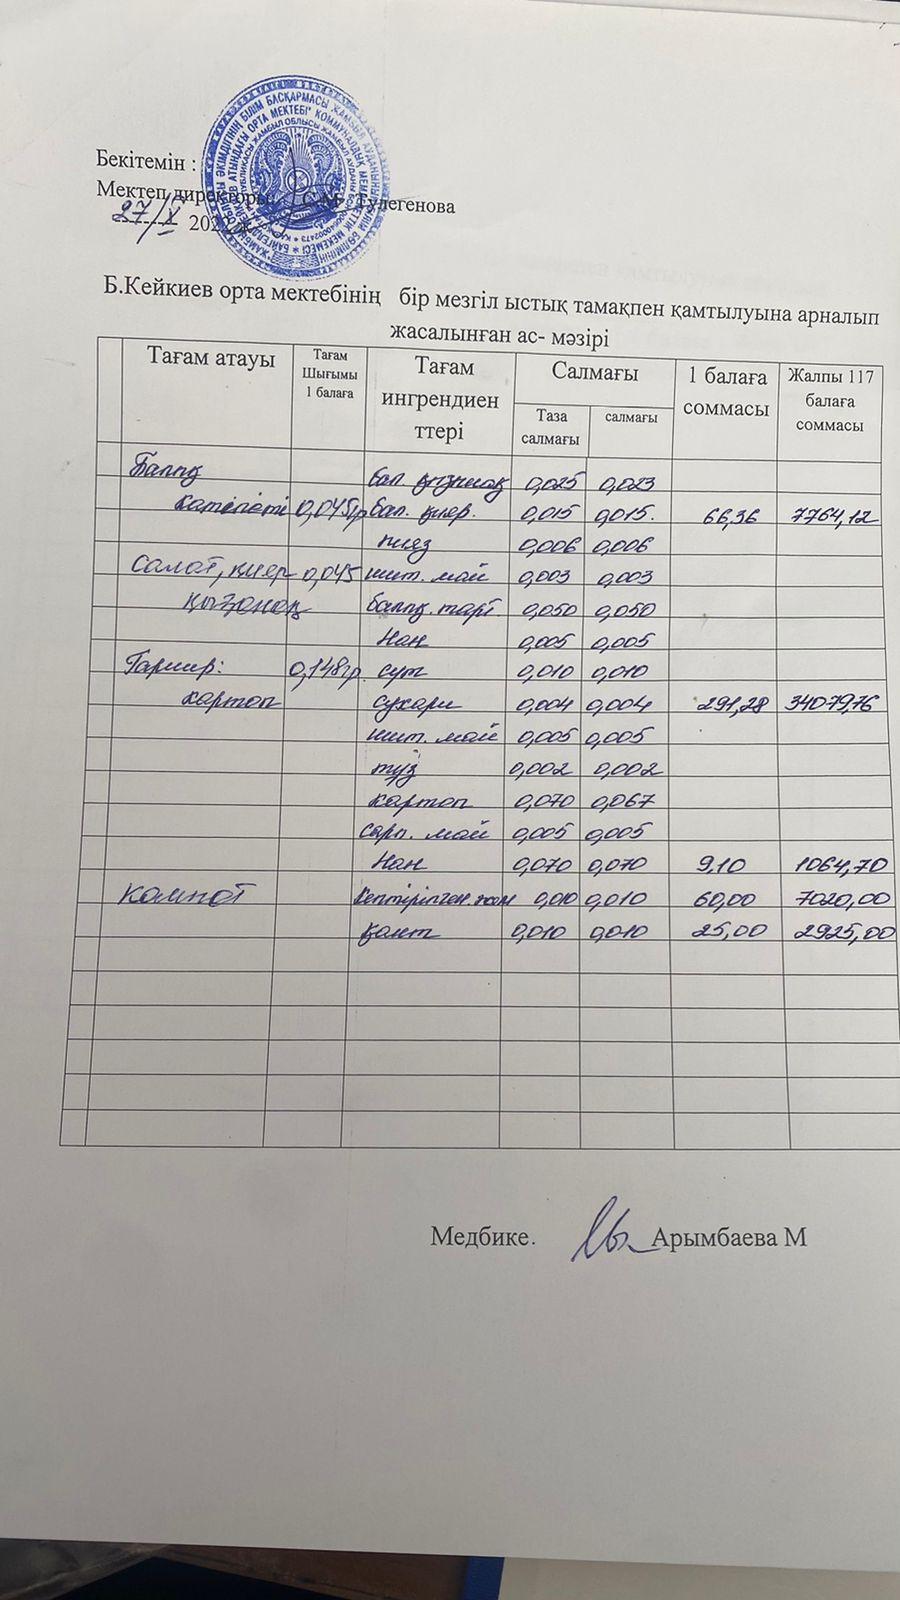 Бекітемін :
Мектеп директоры С.М. Тулегенова
27/X 202
Б.Кейкиев орта мектебінің бір мезгіл ыстық тамақпен қамтылуына арналып
жасалынған ас- мәзірі
Тағам атауы Тағам Шығымы 1 балаға Тағам ингрендиен ттері Салмағы Таза салмағы салмағы 1 балаға соммасы Жалпы 117 балаға соммасы
Балық бал. қызанақ 0,025 0,023
котлеті 0,045гр бал. қияр. 0,015 0,015. 66,36 7764,12
пияз 0,006 0,006
салат, қияр 0,045 шит. май 0,003 0,003
қызанақ балық. 0,050 0,050
Нан 0,005 0,005
Гарнир: 0,148гр. сүт 0,010 0,010
картоп сухари 0,004 0,004 291,28 34079,76
шит. май 0,005 0,005
тұз 0,002 0,002
картоп 0,070 0,067
сары. май 0,005 0,005
Нан 0,070 0,070 9,10 1064,70
компот Кептірілген. 0,010 0,010 60,00 7020,00
қант 0,010 0,010 25,00 2925,00
Медбике. Арымбаева М